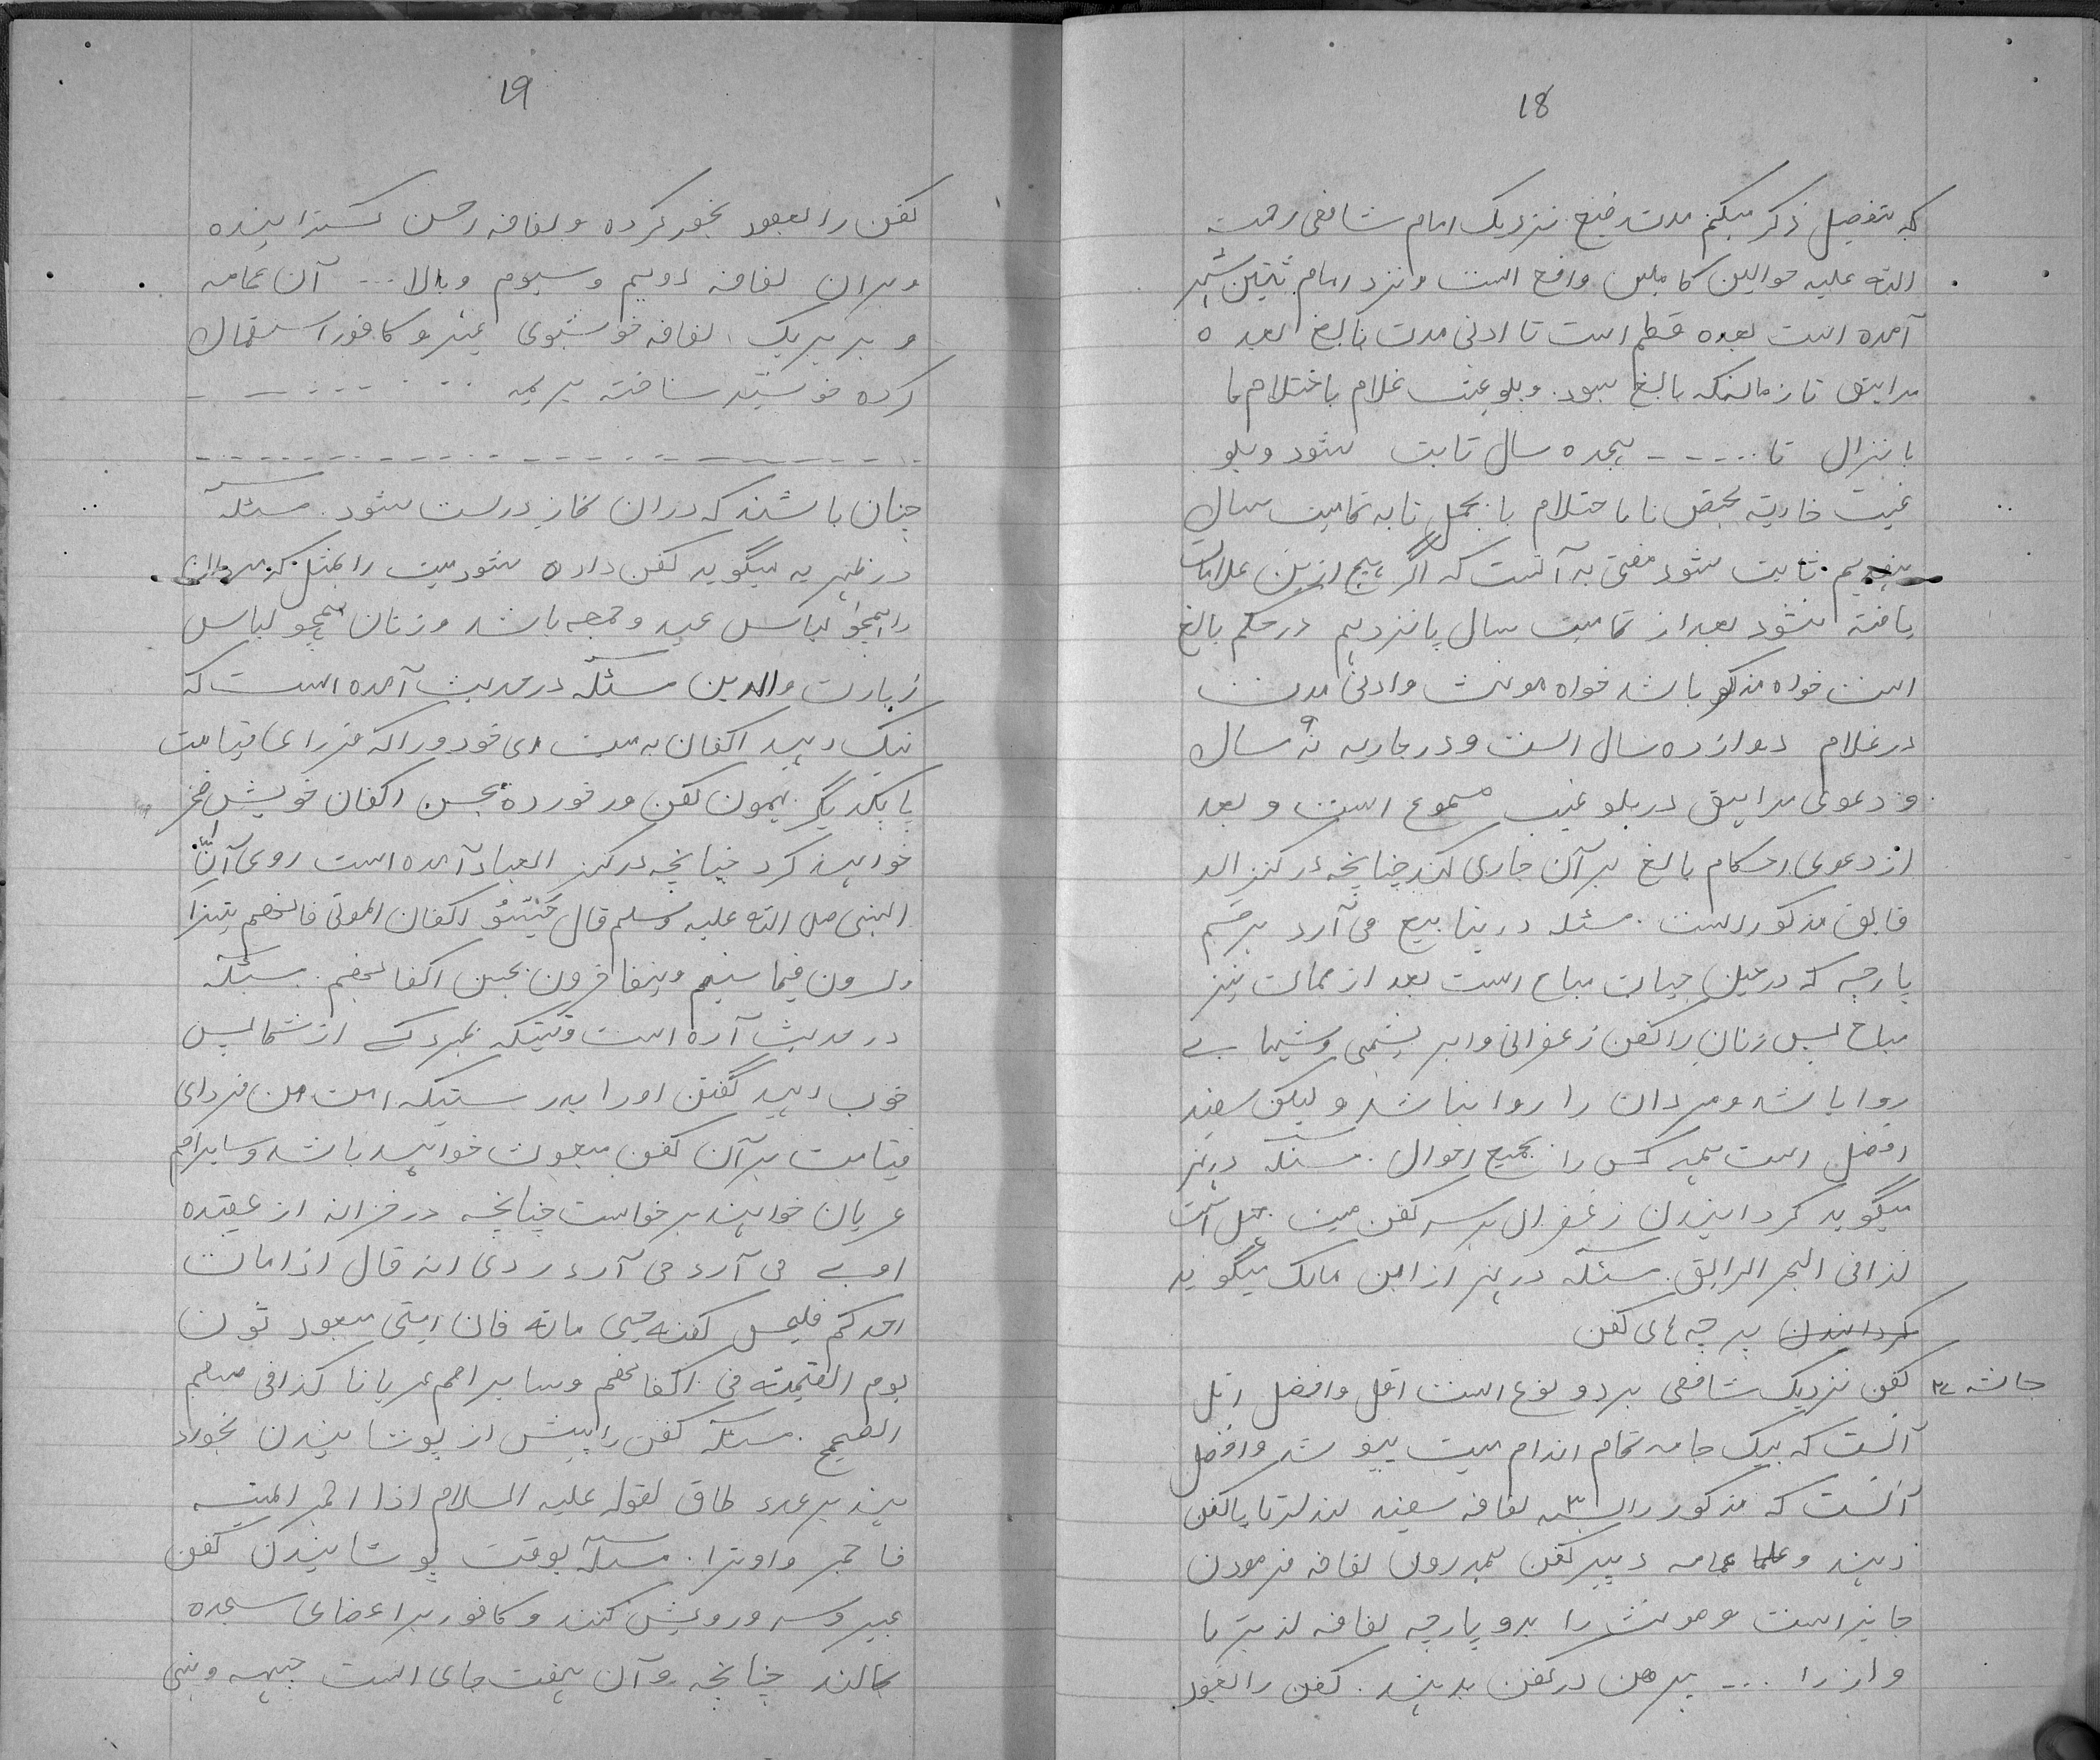 18
که بتفصیل ذکر میکنم مدت رضع نزدیک امام شافعی رحمت
الله علیه حوالین کاملین واقع است و نزد امام ثلثین شهر
آمده است بعده فطم است تا ادنی مدت بالغ بعده
مراهق تا زمانکه بالغ شود. و بلوغیت غلام باحتلام یا
با نزال تا ..... هجده سال ثابت شود و بلو
غیت جاریه بحیض یا باحتلام یا بحمل تا به تمامیت سال
هفدهم ثابت شود مفتی به آنست که اگر هیچ ازین علامات
یافته نشود بعد از تمامیت سال پانزدهم در حکم بالغ
است خواه مذکر باشد خواه مونث و ادنی مدت
در غلام دوازده سال است و در جاریه نه ۹ سال
و دعوی مراهق در بلوغیت مسموع است و بعد
از دعوی احکام بالغ بر آن جاری کند چنانچه در کنز الد
قایق مذکور است. مسئله در ینابیع می آرد هر قسم
پارچه که در حین حیات مباح است بعد از ممات نیز
مباح پس زنان را کفن زعفرانی و ابریشمی و
روا باشد و مردان را روا نباشد و لیکن سفید
افضل است همه کس را بجمیع احوال. مسئله در نهر
میگوید گردانیدن زعفران بر سر کفن میت جهل است
کذا فی البحر الرایق. مسئله در نهر از ابن مالک میگوید
گردانیدن پرچه های کفن
کفن نزدیک شافعی بر دو نوع است اقل و افضل اقل
آنست که بیک جامه تمام اندام میت بپوشد و افضل
آنست که مذکور را بسه ۳ لفافه سفید کفن
دهند و عمامه و پیرکفن بدرون لفافه فرمودن
جایز است و مونث را بدو پارچه لفافه
و ازرا ... پیرهن در کفن بدهند. کفن را بعود
19
کفن را بعود بخور کرده و لفافه احسن گسترانیده
و بران لفافه دویم و سیوم و بالا ... آن عمامه
و بر هر یک لفافه خوشبوی عنبر و کافور استعمال
کرده ساخته بر همه
چنان باشند که دران نماز درست شود. مسئله
در ظهیریه میگوید کفن داده شود میت را بمثل که مردان
را همچو لباس عید و جمعه باشد و زنان همچو لباس
زیارت والدین مسئله در حدیث آمده است که
نیک دهید اکفان به میت های خود ورا که فردای قیامت
بایکدیگر بهمون کفن در خورده بحسن اکفان خویش فخر
خواهند کرد چنانچه در کنز العباد آمده است روی آنّ
النبی صلی الله علیه وسلم قال اکفان الموتی فانهم یتزا
ورون فیما بینهم ویتفاخرون بحسن اکفانهم. مسئله
در حدیث آمده است وقتیکه بمیرد کسی از شما پس
خوب دهید کفن او را بدرستیکه امت من فردای
قیامت بر آن کفن مبعوث خواهند باشد و سایر امم
عریان خواهند برخواست چنانچه در خزانه از عقیده
می آرد می آرد روی انه قال اذا مات
احدکم کفنه فان امتی مبعوثون
یوم القیمة فی اکفانهم وسایر امم عریانا کذا فی
الصحیح. مسئله کفن را پیش از پوشانیدن بخور
بر عدد طاق لقوله علیه السلام اذا اجمر المیت
فاجمروا وترا. مسئله بوقت پوشانیدن کفن
عبیر و سر و رویش کنند و کافور بر اعضای سجده
بمالند چنانچه و آن هفت جای است جبهه و بینی